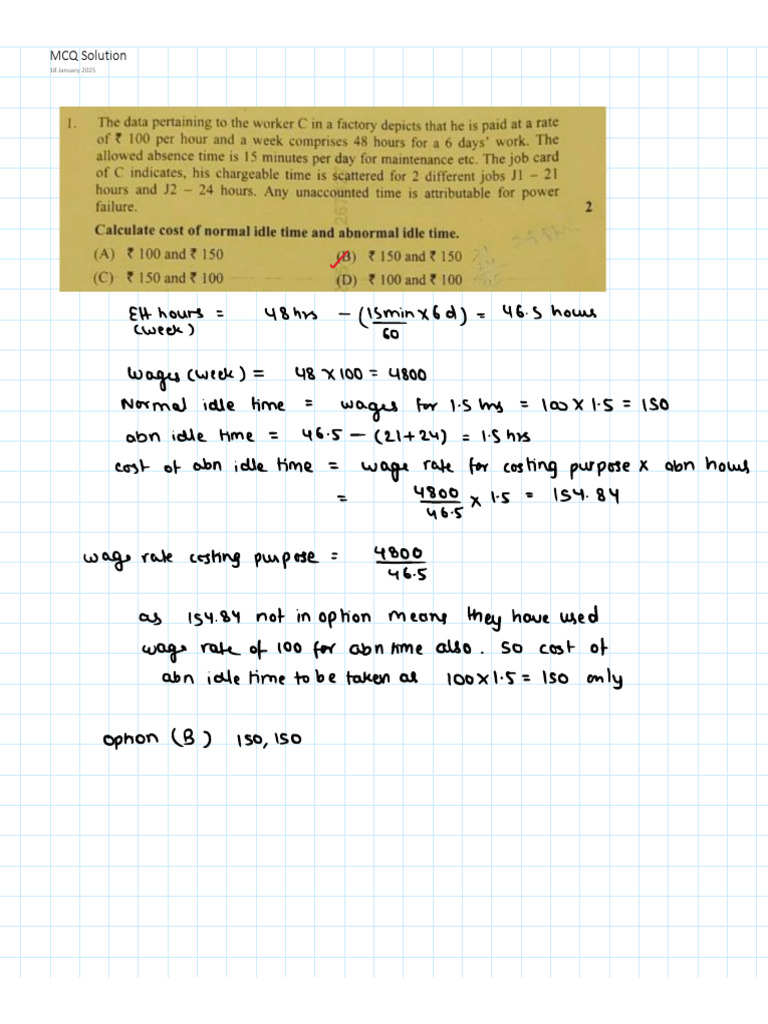 MCQ Solution
18 January 2025
1. The data pertaining to the worker C in a factory depicts that he is paid at a rate
of ₹ 100 per hour and a week comprises 48 hours for a 6 days' work. The
allowed absence time is 15 minutes per day for maintenance etc. The job card
of C indicates, his chargeable time is scattered for 2 different jobs J1 – 21
hours and J2 – 24 hours. Any unaccounted time is attributable for power
failure. 2
Calculate cost of normal idle time and abnormal idle time.
(A) ₹ 100 and ₹ 150 (B) ₹ 150 and ₹ 150
(C) ₹ 150 and ₹ 100 (D) ₹ 100 and ₹ 100
Eff hours = 48 hrs – (15min/60 x 6d) = 46.5 hours
(week)
wages (week) = 48 x 100 = 4800
Normal idle time = wages for 1.5 hrs = 100 x 1.5 = 150
abn idle time = 46.5 – (21+24) = 1.5 hrs
cost of abn idle time = wage rate for costing purpose x abn hours
= 4800/46.5 x 1.5 = 154.84
wage rate costing purpose = 4800/46.5
as 154.84 not in option means they have used
wage rate of 100 for abn time also. So cost of
abn idle time to be taken as 100x1.5 = 150 only
option (B) 150, 150